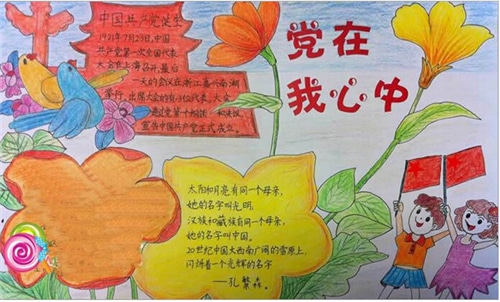 中国共产党诞生
1921年7月23日,中国
共产党第一次全国代表
大会在上海召开,最后
一天的会议在浙江嘉兴南湖
举行。出席大会的有13位代表,大会
通过党第个纲领和决议,
宣告中国共产党正式成立。
党在
我心中
太阳和月亮有同一个母亲,
她的名字叫光明,
汉族和藏族有同一个母亲,
她的名字叫中国。
20世纪中国大西南广阔的雪原上,
闪烁着一个光辉的名字
——孔繁森。